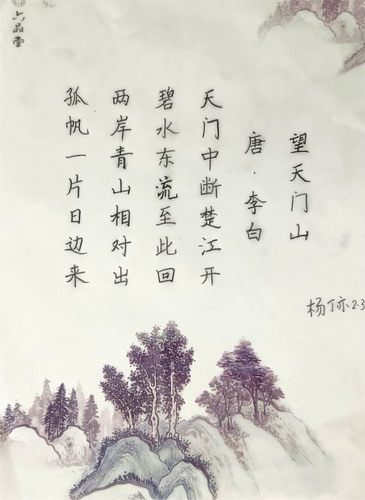 望天门山
唐·李白
天门中断楚江开
碧水东流至此回
两岸青山相对出
孤帆一片日边来
杨丁亦2.3
六品堂